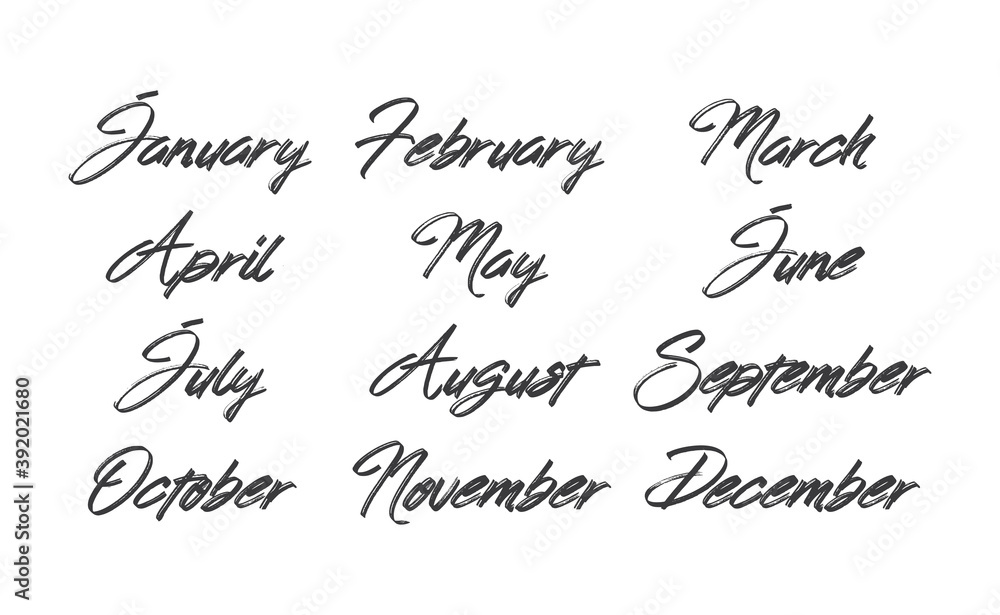 January February March
April May June
July August September
October November December
Adobe Stock | #392021680
Adobe Stock